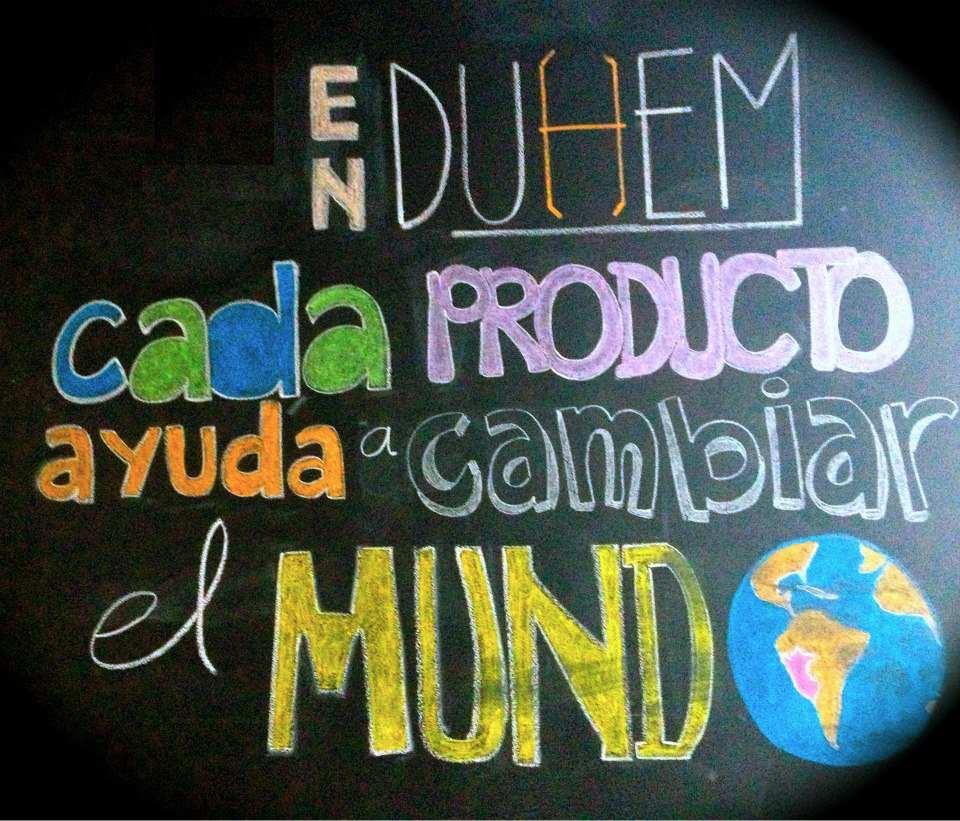 EN DUHEM
cada PRODUCTO
ayuda a cambiar
el MUNDO